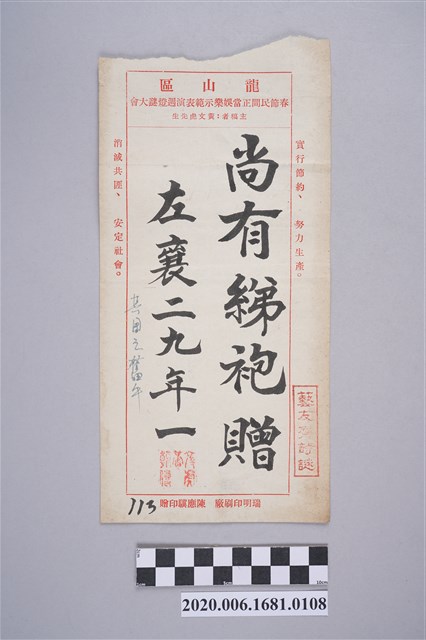 龍山區
春節民間正當娛樂示範表演週燈謎大會
主福者：黃文虎先生
實行節約、努力生產。
尚有綈袍贈
左襄二九年一
消滅共匪、安定社會。
113
瑞明印刷廠 陳應驥印贈
2020.006.1681.0108